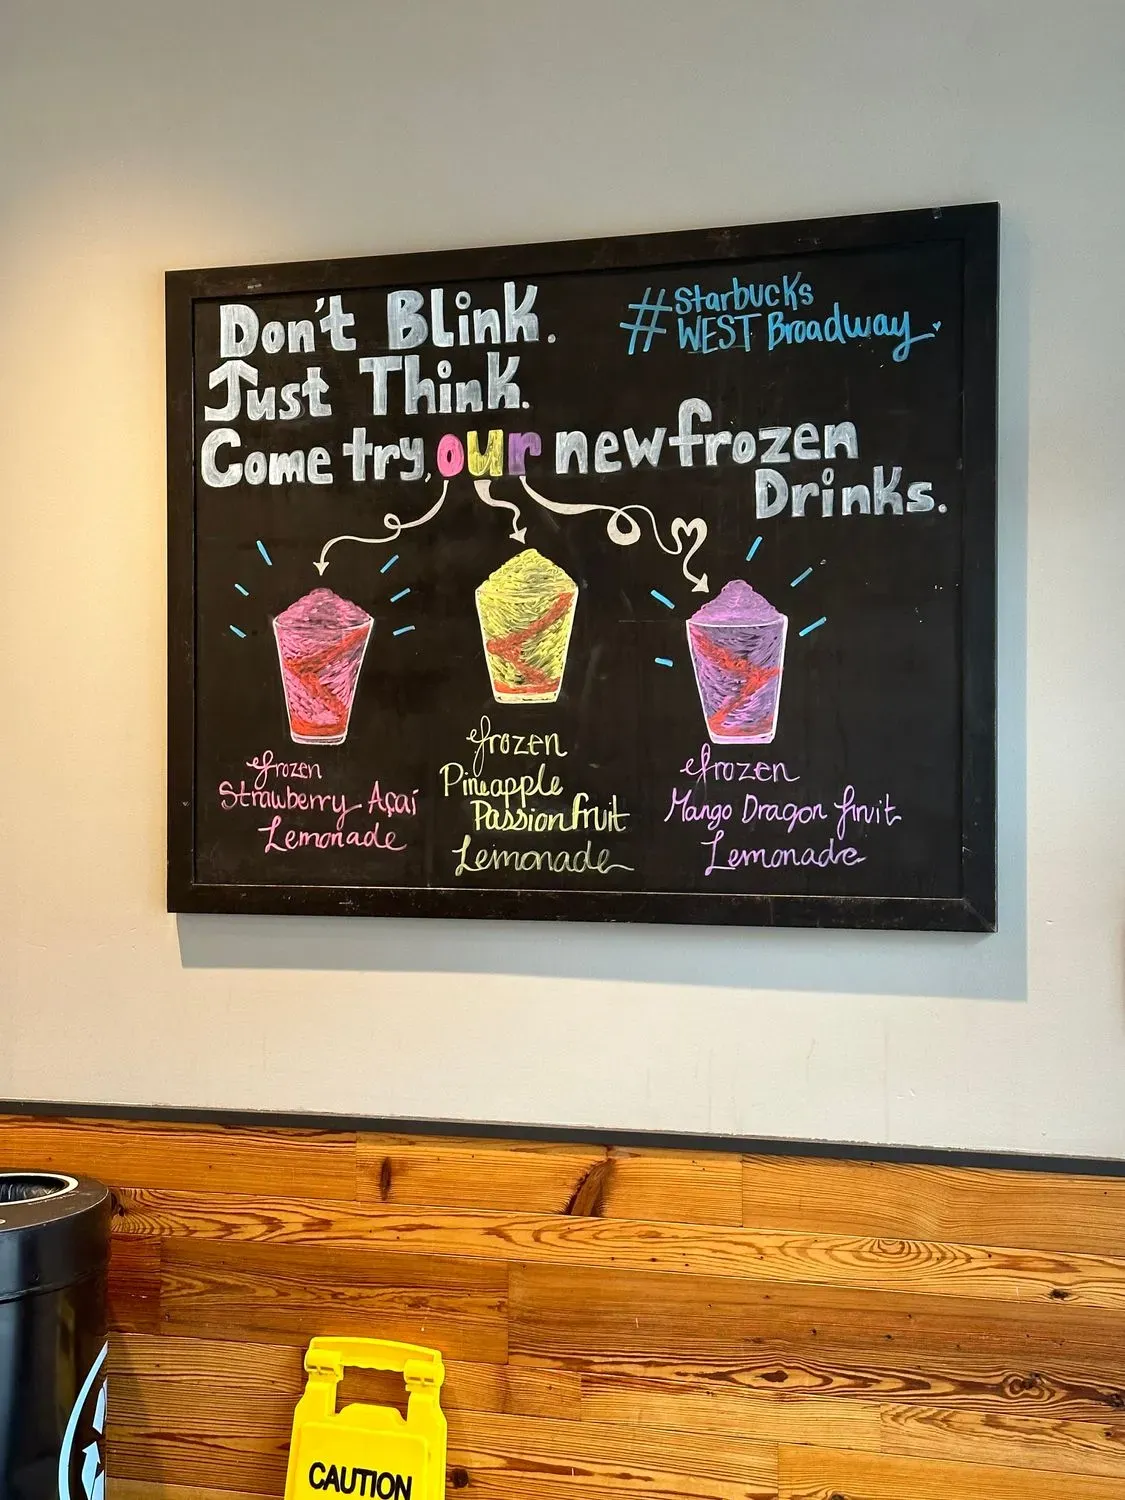 Don't Blink.
#Starbucks
WEST Broadway
Just Think.
Come try, our new frozen
Drinks.
frozen
Strawberry Açaí
Lemonade
frozen
Pineapple
Passionfruit
Lemonade
frozen
Mango Dragon fruit
Lemonade
CAUTION